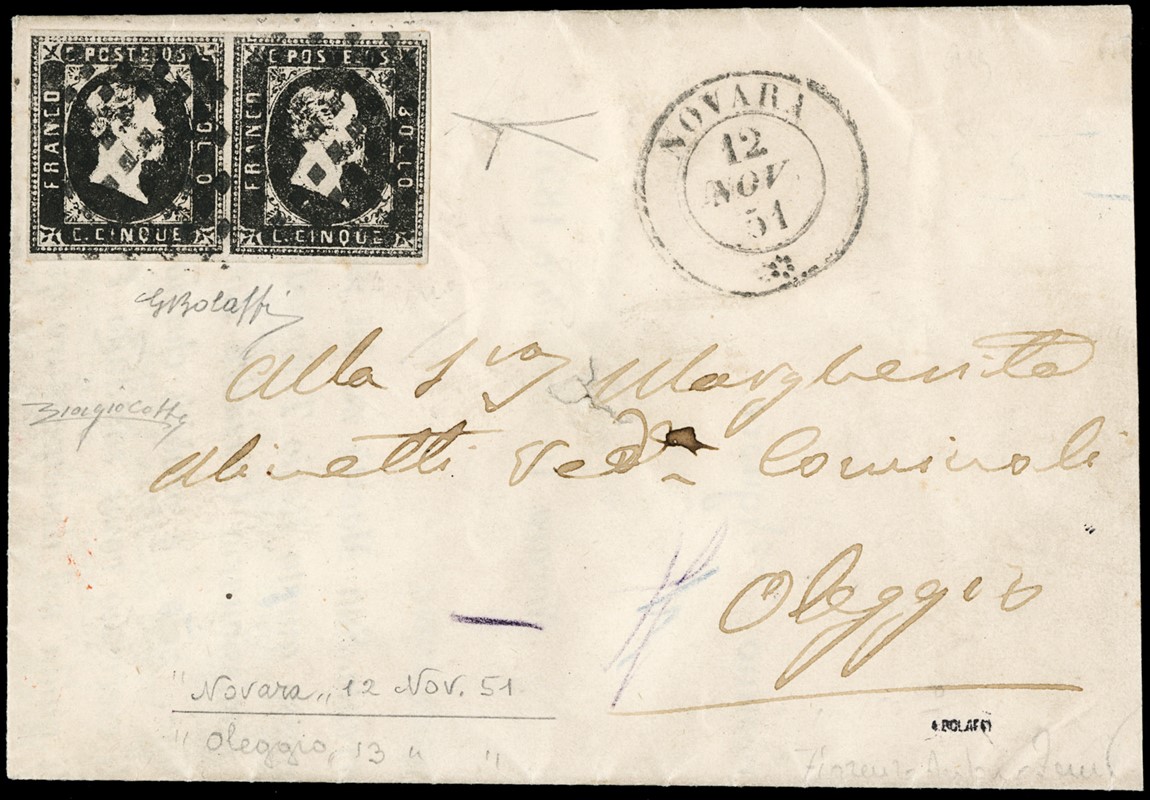 C. POSTE 0S
FRANCO
BOLLO
C. CINQUE
C. POSTE 0S
FRANCO
BOLLO
C. CINQUE
NOVARA
12
NOV
51
GBolaffi
Alla Sra Margherita
Minetti Veda
Oleggio
"Novara" 12 Nov. 51
"Oleggio, 13 " "
G.BOLAFFI